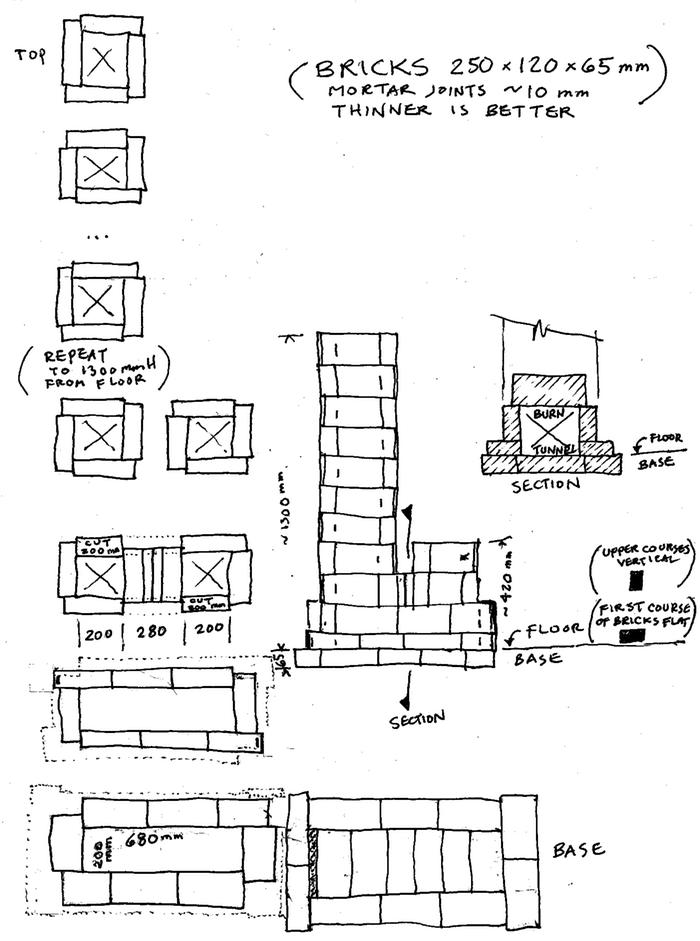 TOP
(BRICKS 250 x 120 x 65 mm
MORTAR JOINTS ~10 mm
THINNER IS BETTER)
...
(REPEAT
TO 1300 mm H
FROM FLOOR)
BURN
TUNNEL
FLOOR
BASE
SECTION
~1300 mm
~420 mm
CUT
200 mm
CUT
200 mm
200 280 200
(UPPER COURSES
VERTICAL)
(FIRST COURSE
OF BRICKS FLAT)
FLOOR
BASE
65
SECTION
680 mm
200 mm
BASE